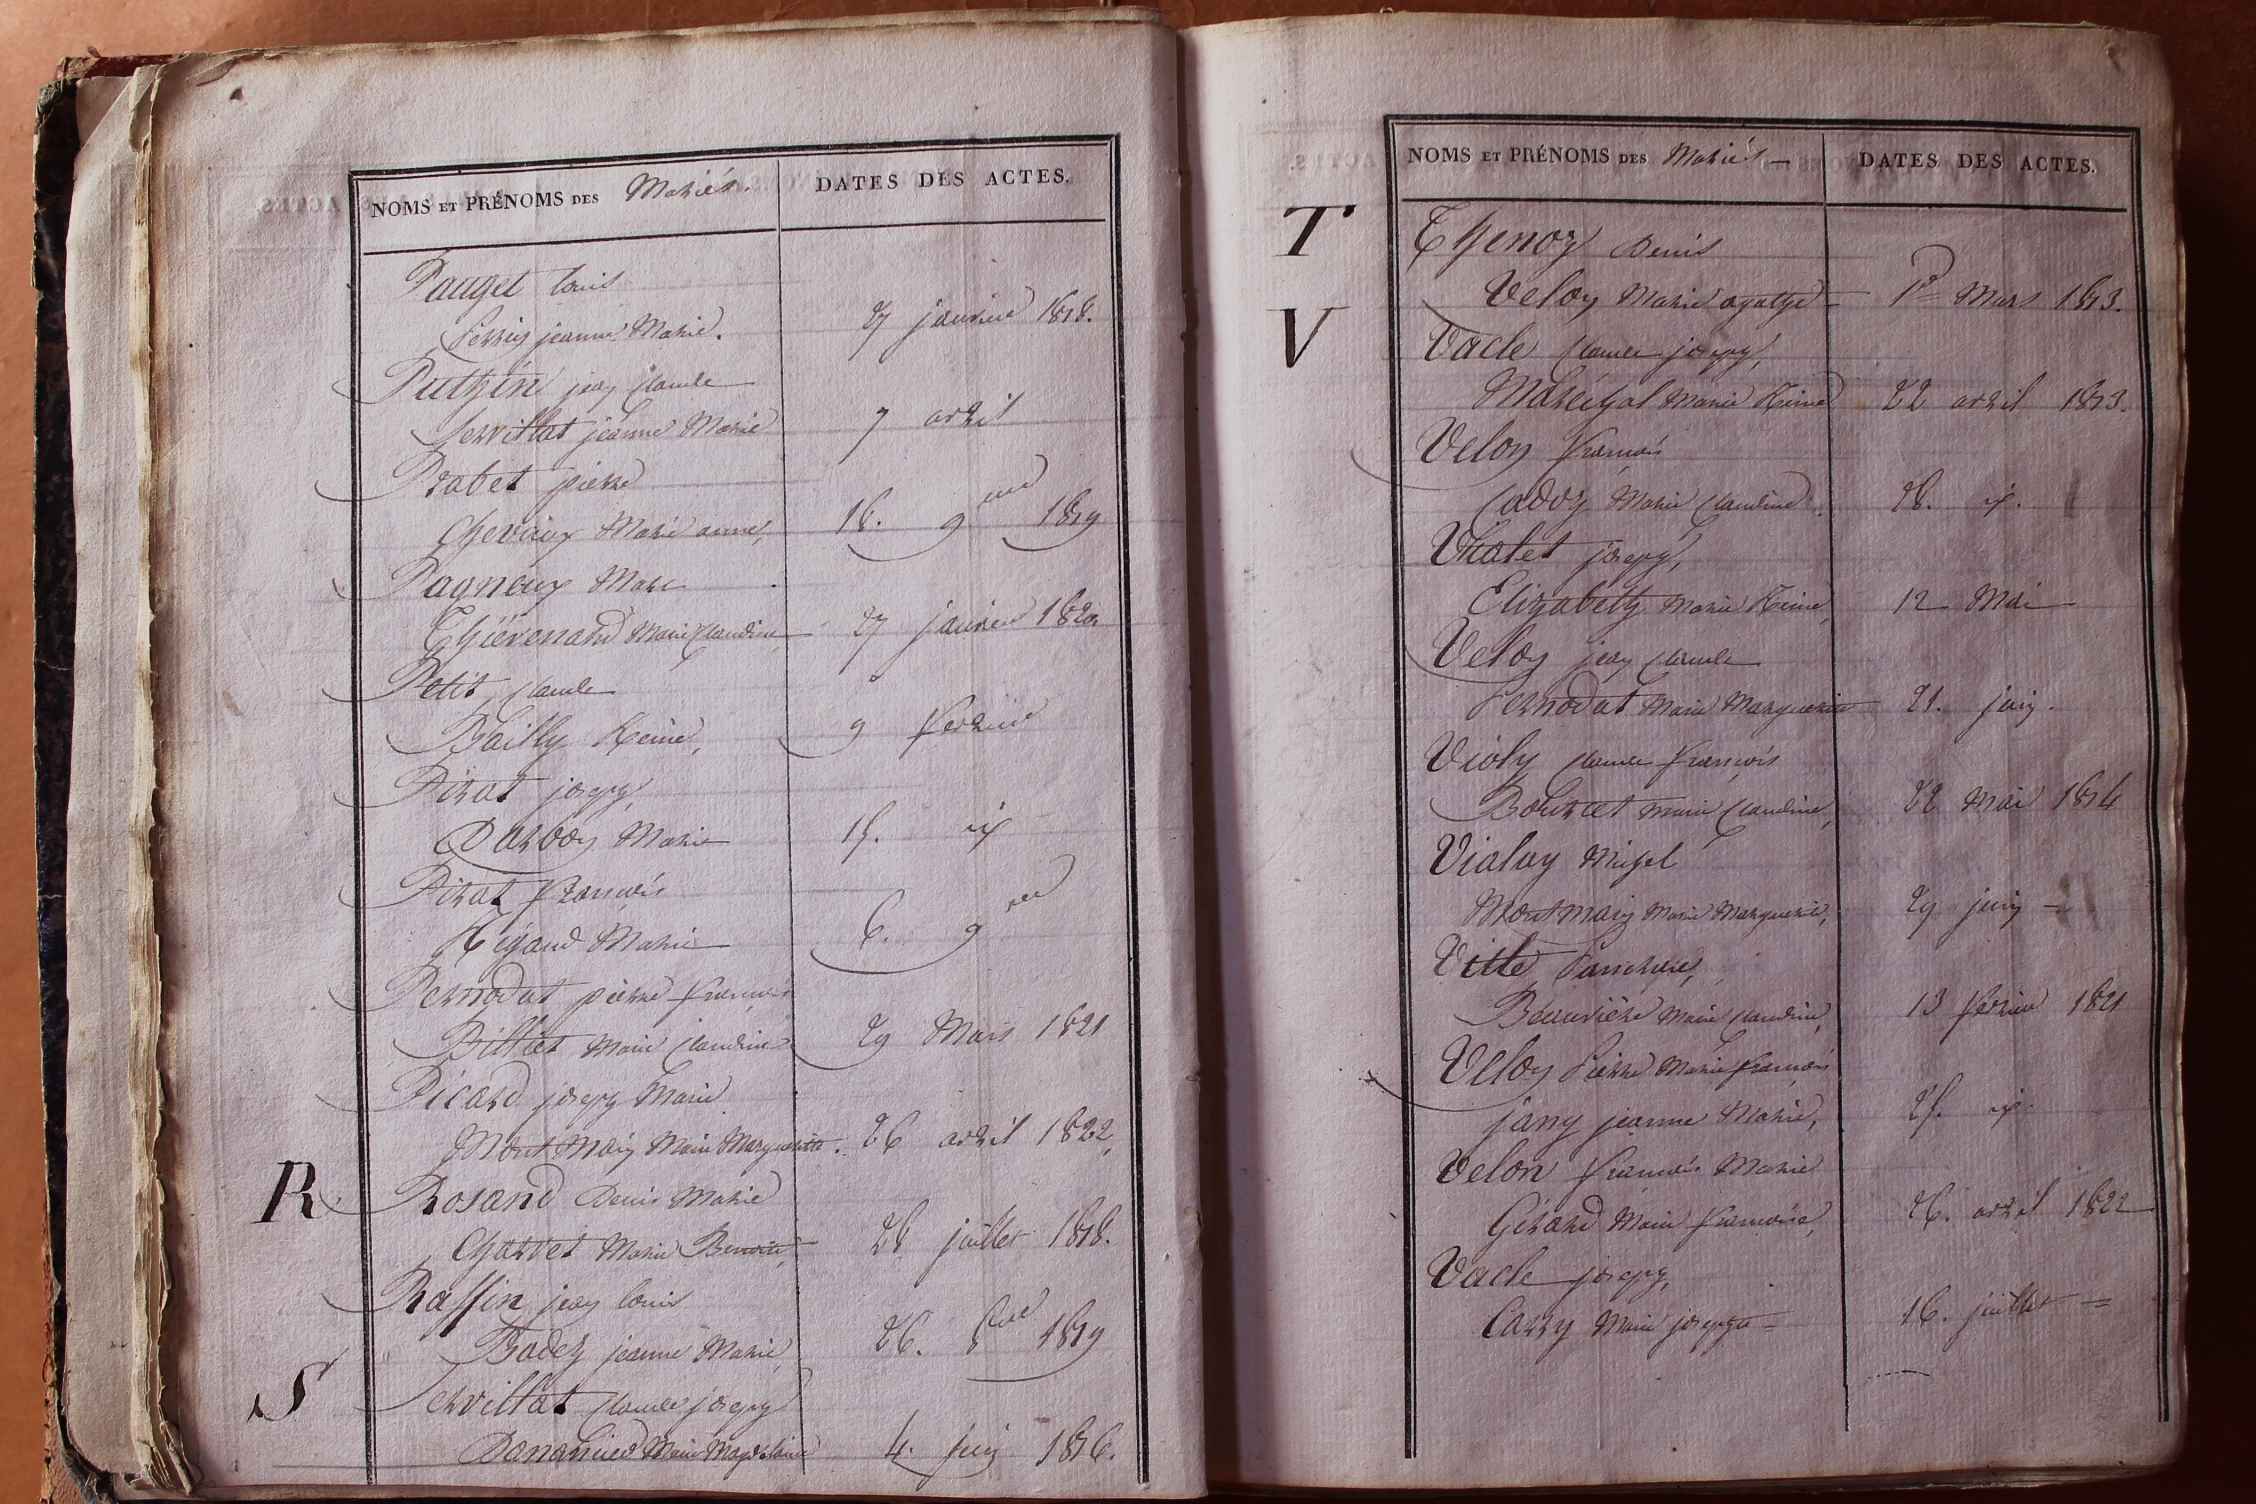 NOMS ET PRÉNOMS DES Mariés. DATES DES ACTES.
Pauget louis
Perrin jeanne Marie. 27 janvier 1818.
Puthin jean Claude
Servillat jeanne Marie 7 avril
Prabet pierre
Chevaux Marie anne, 18. 9bre 1819
Pagneux Marc
Thiévenard Marie Claudine 27 janvier 1820
Petit Claude
Bailly Reine, 9 fevrier
Pirat joseph
Darbon Marie 15. id
Pirat François
Rigaud Marie 6. 9bre
Pernodat pierre François
Billiet Marie Claudine 29 Mars 1821
Picard joseph Marie
Mont Main Marie Marguerite. 26 avril 1822
R. Rosand Denis Marie
Charvet Marie Benoite, 28 juillet 1818.
Raffin jean louis
Badez jeanne Marie 26. 8bre 1819
S Servillat Claude joseph
Marie Magdelaine 4. juin 1816.
NOMS ET PRÉNOMS DES Mariés DATES DES ACTES.
T Thenoz Denis
Velon Marie agathe 1er Mars 1813.
V Vacle Claude joseph,
Maréchal Marie Reine 22 avril 1813.
Velon François
Cadoz Marie Claudine. 28. id.
Viralet joseph,
Elizabeth Marie Reine, 12 Mai
Velon jean Claude
Pernodat Marie Marguerite 21. juin.
Violy Claude François
Bourcet Marie Claudine, 22 Mai 1814
Vialay Michel
Montmain Marie Marguerite, 29 juin
Vitte
Marie Claudine, 13 fevrier 1821
Velon Pierre Marie François
jany jeanne Marie, 25. id.
Velon François Marie
Girard Marie Françoise, 26. avril 1822
Vacle joseph,
Carry Marie josephte 16. juillet